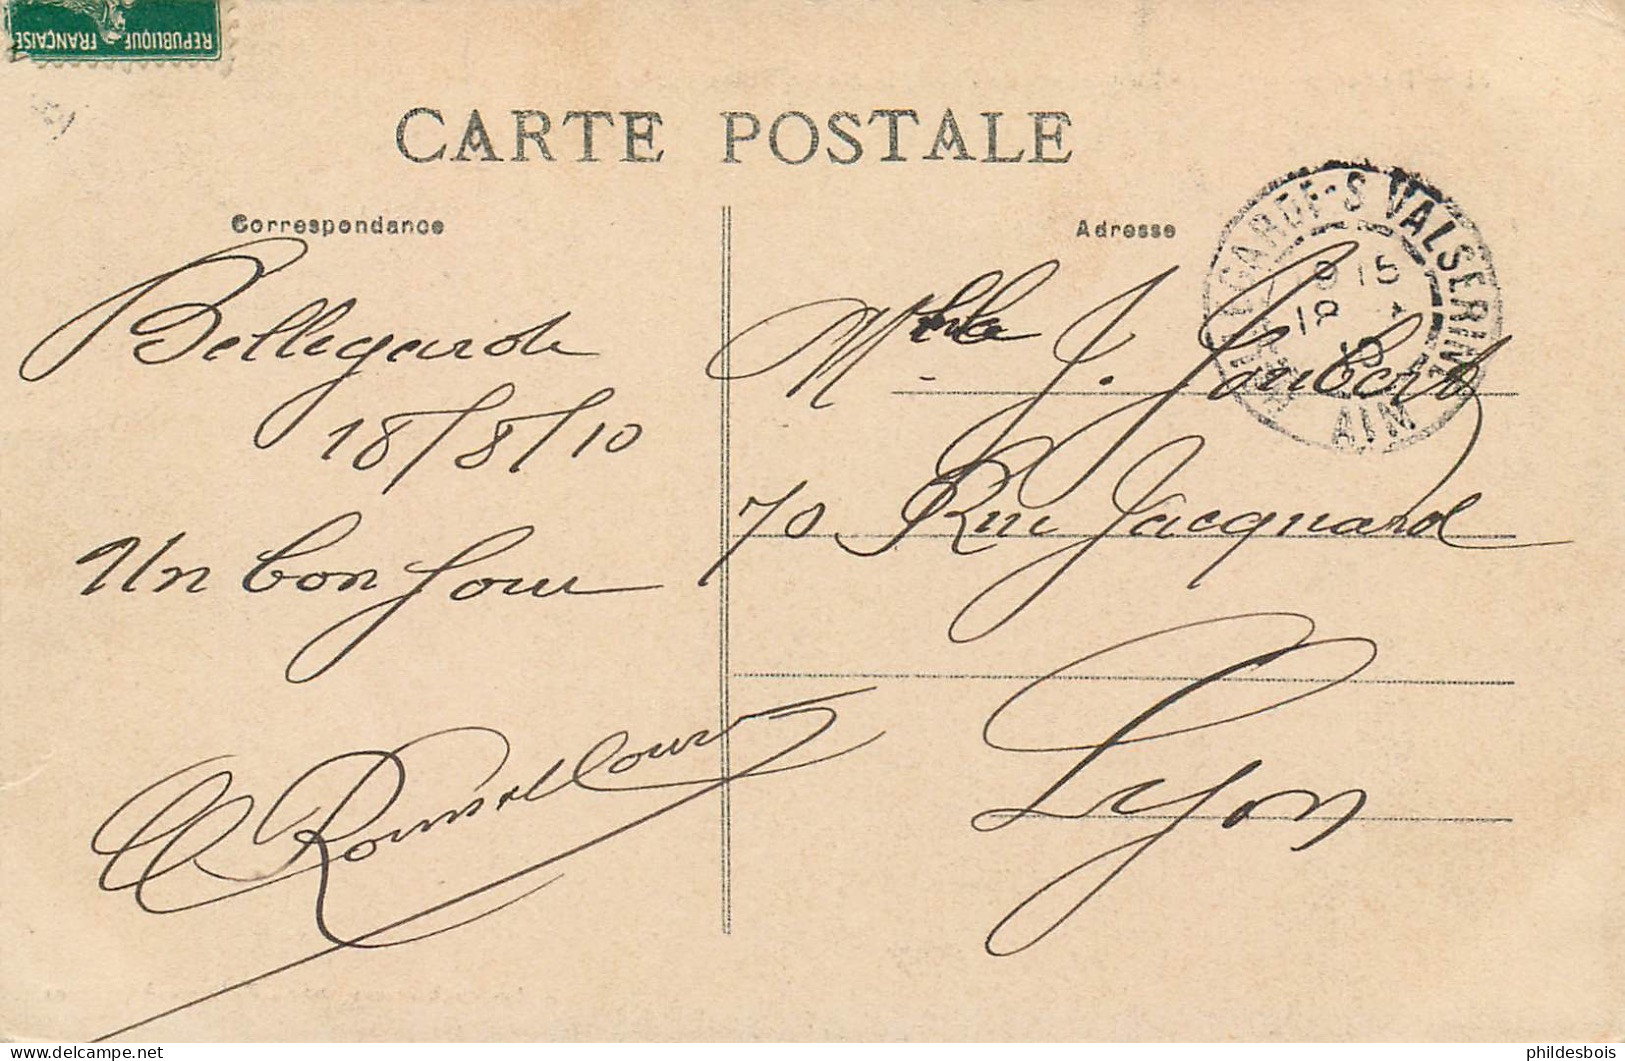 REPUBLIQUE FRANÇAISE
CARTE POSTALE
Correspondance
Bellegarde
18/8/10
Un bonjour
Adresse
BELLEGARDE-S-VALSERINE
9 15
18
AIN
Mlle J. Joubert
70 Rue Jacquard
Lyon
delcampe.net
phildesbois